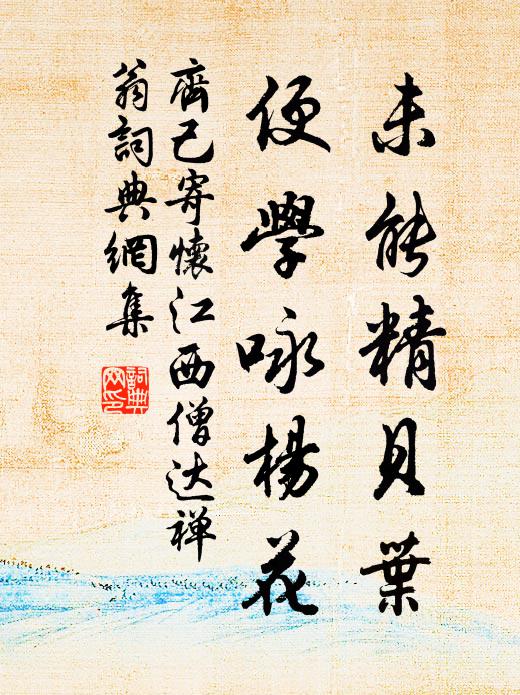 未能精贝葉
便學咏楊花
齊己寄懷江西僧达禅
翁詞典網集
詞典網印